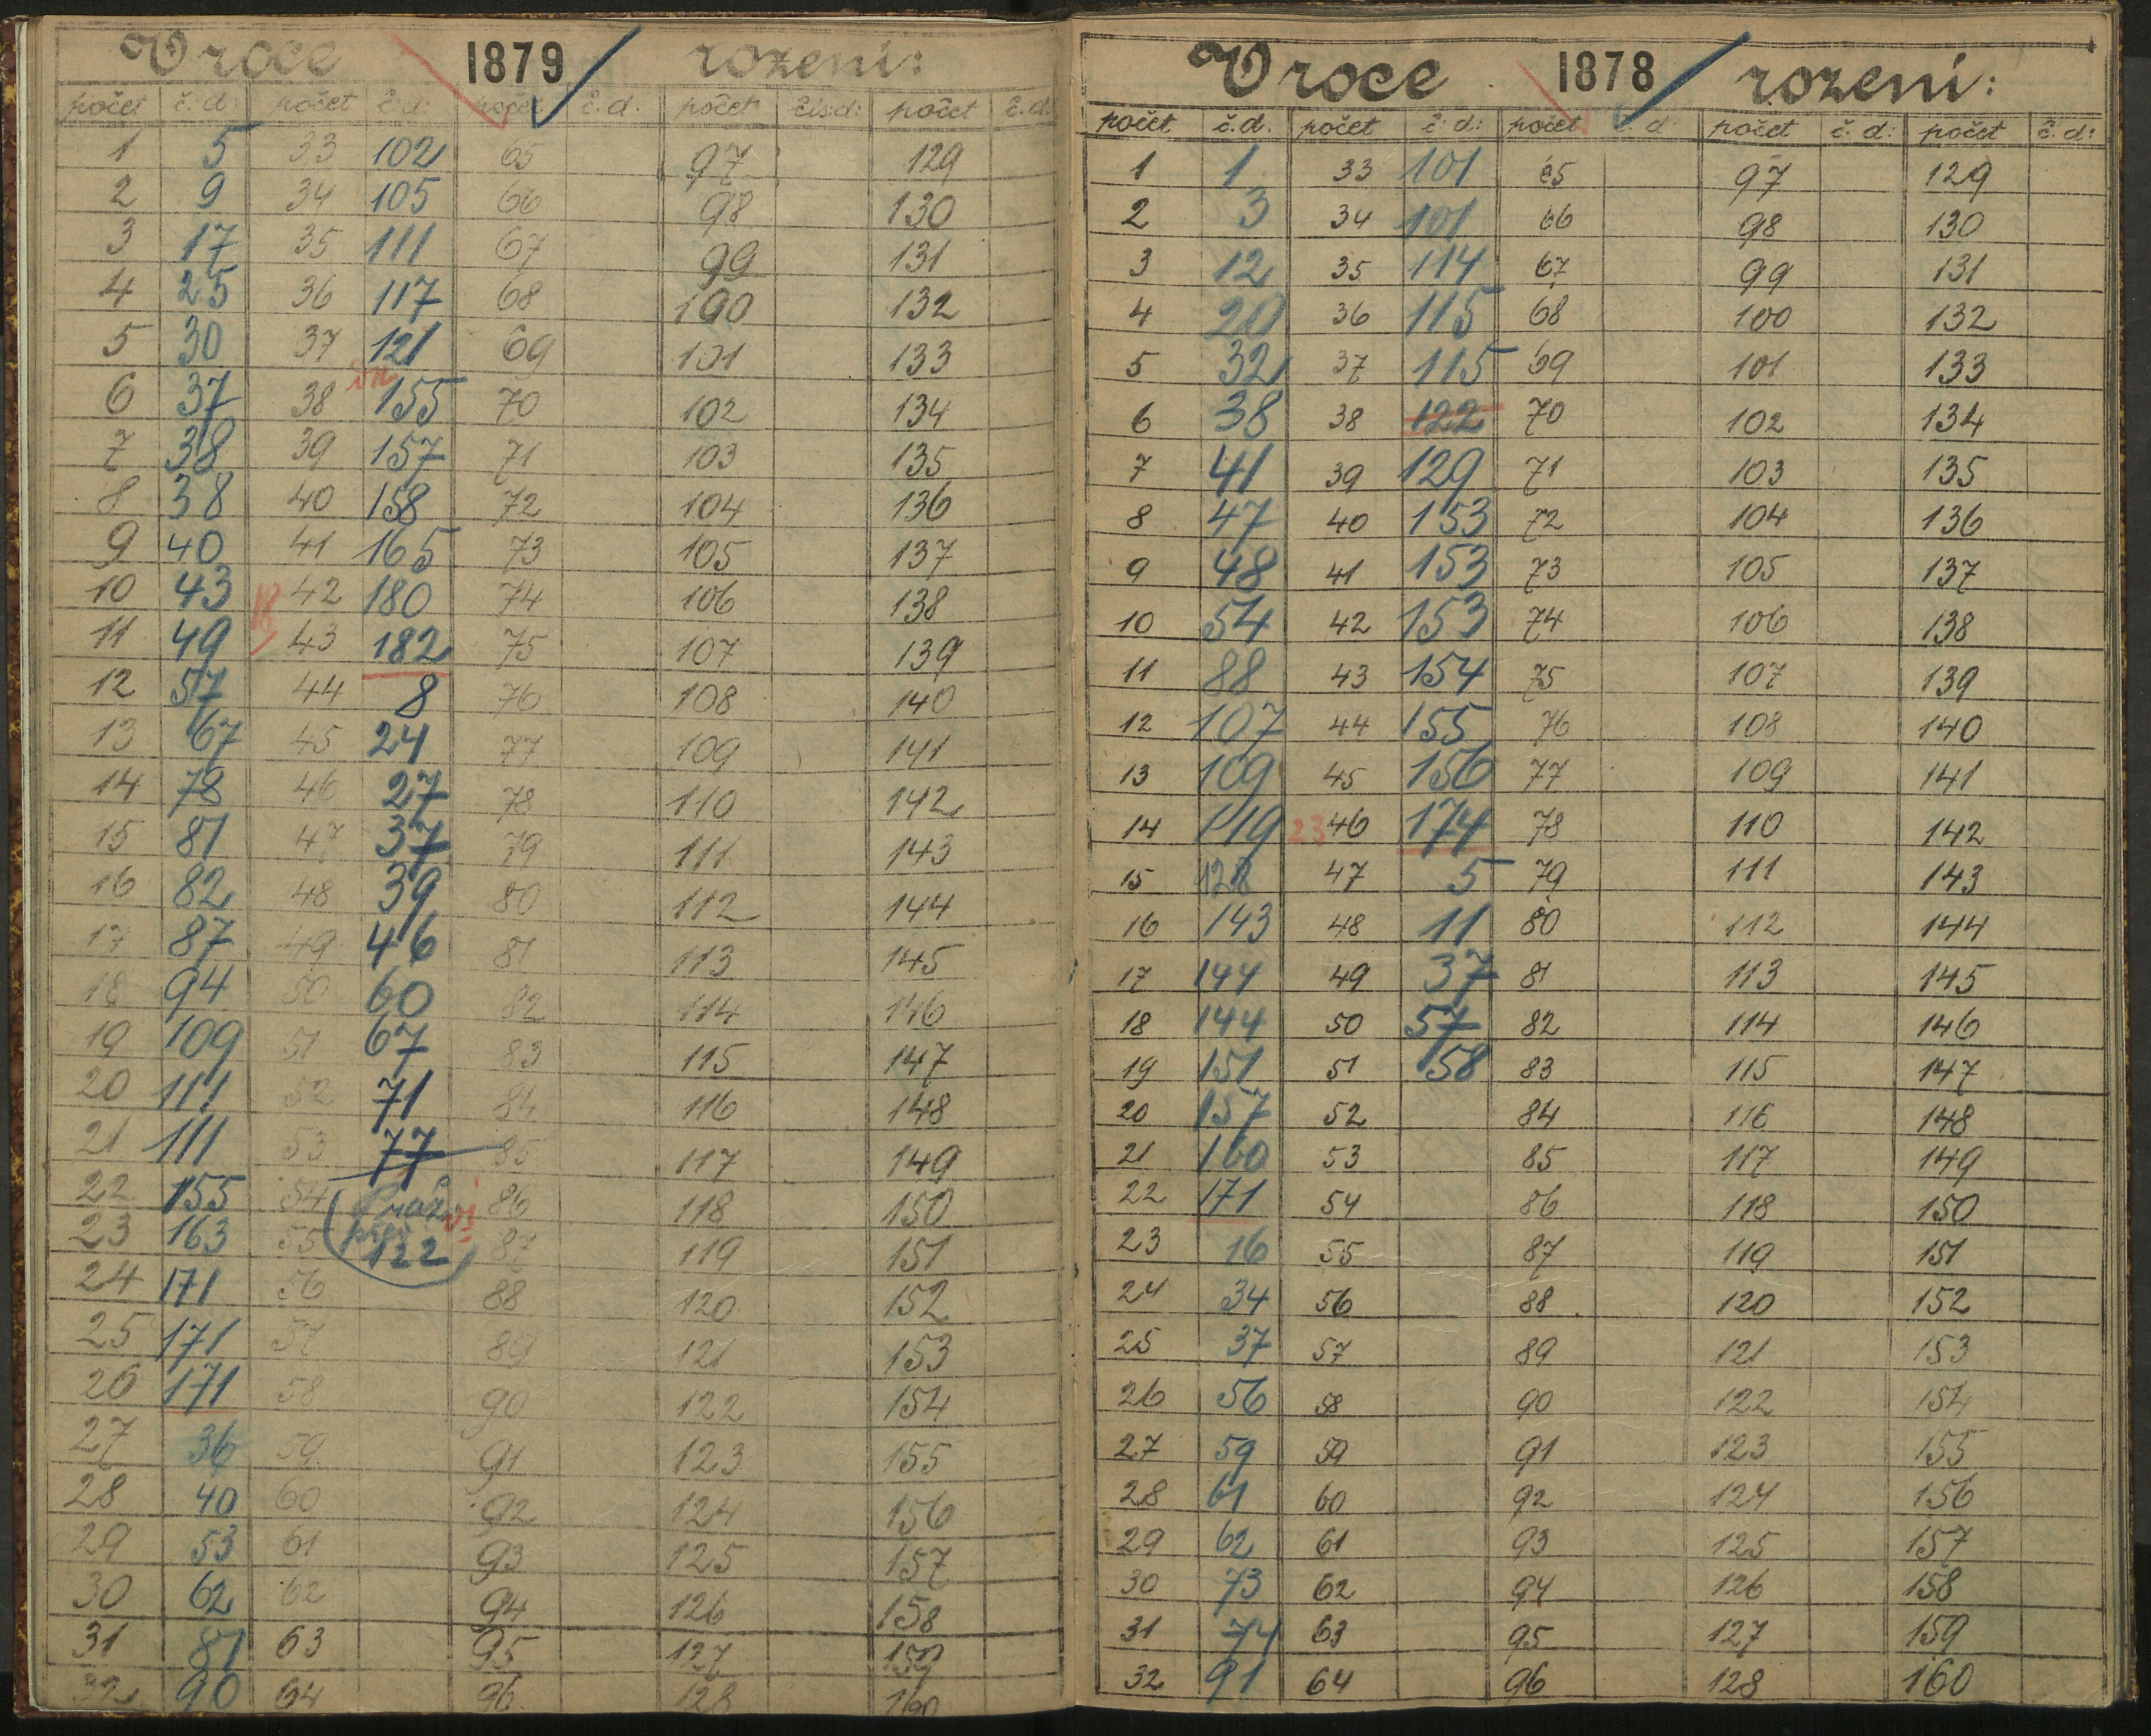 V roce 1879 rození:
počet č.d: počet č.d: počet č.d. počet čís.d: počet č.d.
1 5 33 102 65 97 129
2 9 34 105 66 98 130
3 17 35 111 67 99 131
4 25 36 117 68 100 132
5 30 37 121 69 101 133
6 37 38 155 70 102 134
7 38 39 157 71 103 135
8 38 40 158 72 104 136
9 40 41 165 73 105 137
10 43 18 42 180 74 106 138
11 49 43 182 75 107 139
12 57 44 8 76 108 140
13 67 45 24 77 109 141
14 78 46 27 78 110 142
15 81 47 37 79 111 143
16 82 48 39 80 112 144
17 87 49 46 81 113 145
18 94 50 60 82 114 146
19 109 51 67 83 115 147
20 111 52 71 84 116 148
21 111 53 77 85 117 149
22 155 54 86 118 150
23 163 55 122 87 119 151
24 171 56 88 120 152
25 171 57 89 121 153
26 171 58 90 122 154
27 36 59 91 123 155
28 40 60 92 124 156
29 53 61 93 125 157
30 62 62 94 126 158
31 81 63 95 127 159
32 90 64 96 128 160
V roce 1878 rození:
počet č.d. počet č.d: počet č.d. počet č.d: počet č.d:
1 1 33 101 65 97 129
2 3 34 101 66 98 130
3 12 35 114 67 99 131
4 20 36 115 68 100 132
5 32 37 115 69 101 133
6 38 38 122 70 102 134
7 41 39 129 71 103 135
8 47 40 153 72 104 136
9 48 41 153 73 105 137
10 54 42 153 74 106 138
11 88 43 154 75 107 139
12 107 44 155 76 108 140
13 109 45 156 77 109 141
14 119 23 46 174 78 110 142
15 128 47 5 79 111 143
16 143 48 11 80 112 144
17 144 49 37 81 113 145
18 144 50 57 82 114 146
19 151 51 58 83 115 147
20 157 52 84 116 148
21 160 53 85 117 149
22 171 54 86 118 150
23 16 55 87 119 151
24 34 56 88 120 152
25 37 57 89 121 153
26 56 58 90 122 154
27 59 59 91 123 155
28 61 60 92 124 156
29 62 61 93 125 157
30 73 62 94 126 158
31 74 63 95 127 159
32 91 64 96 128 160